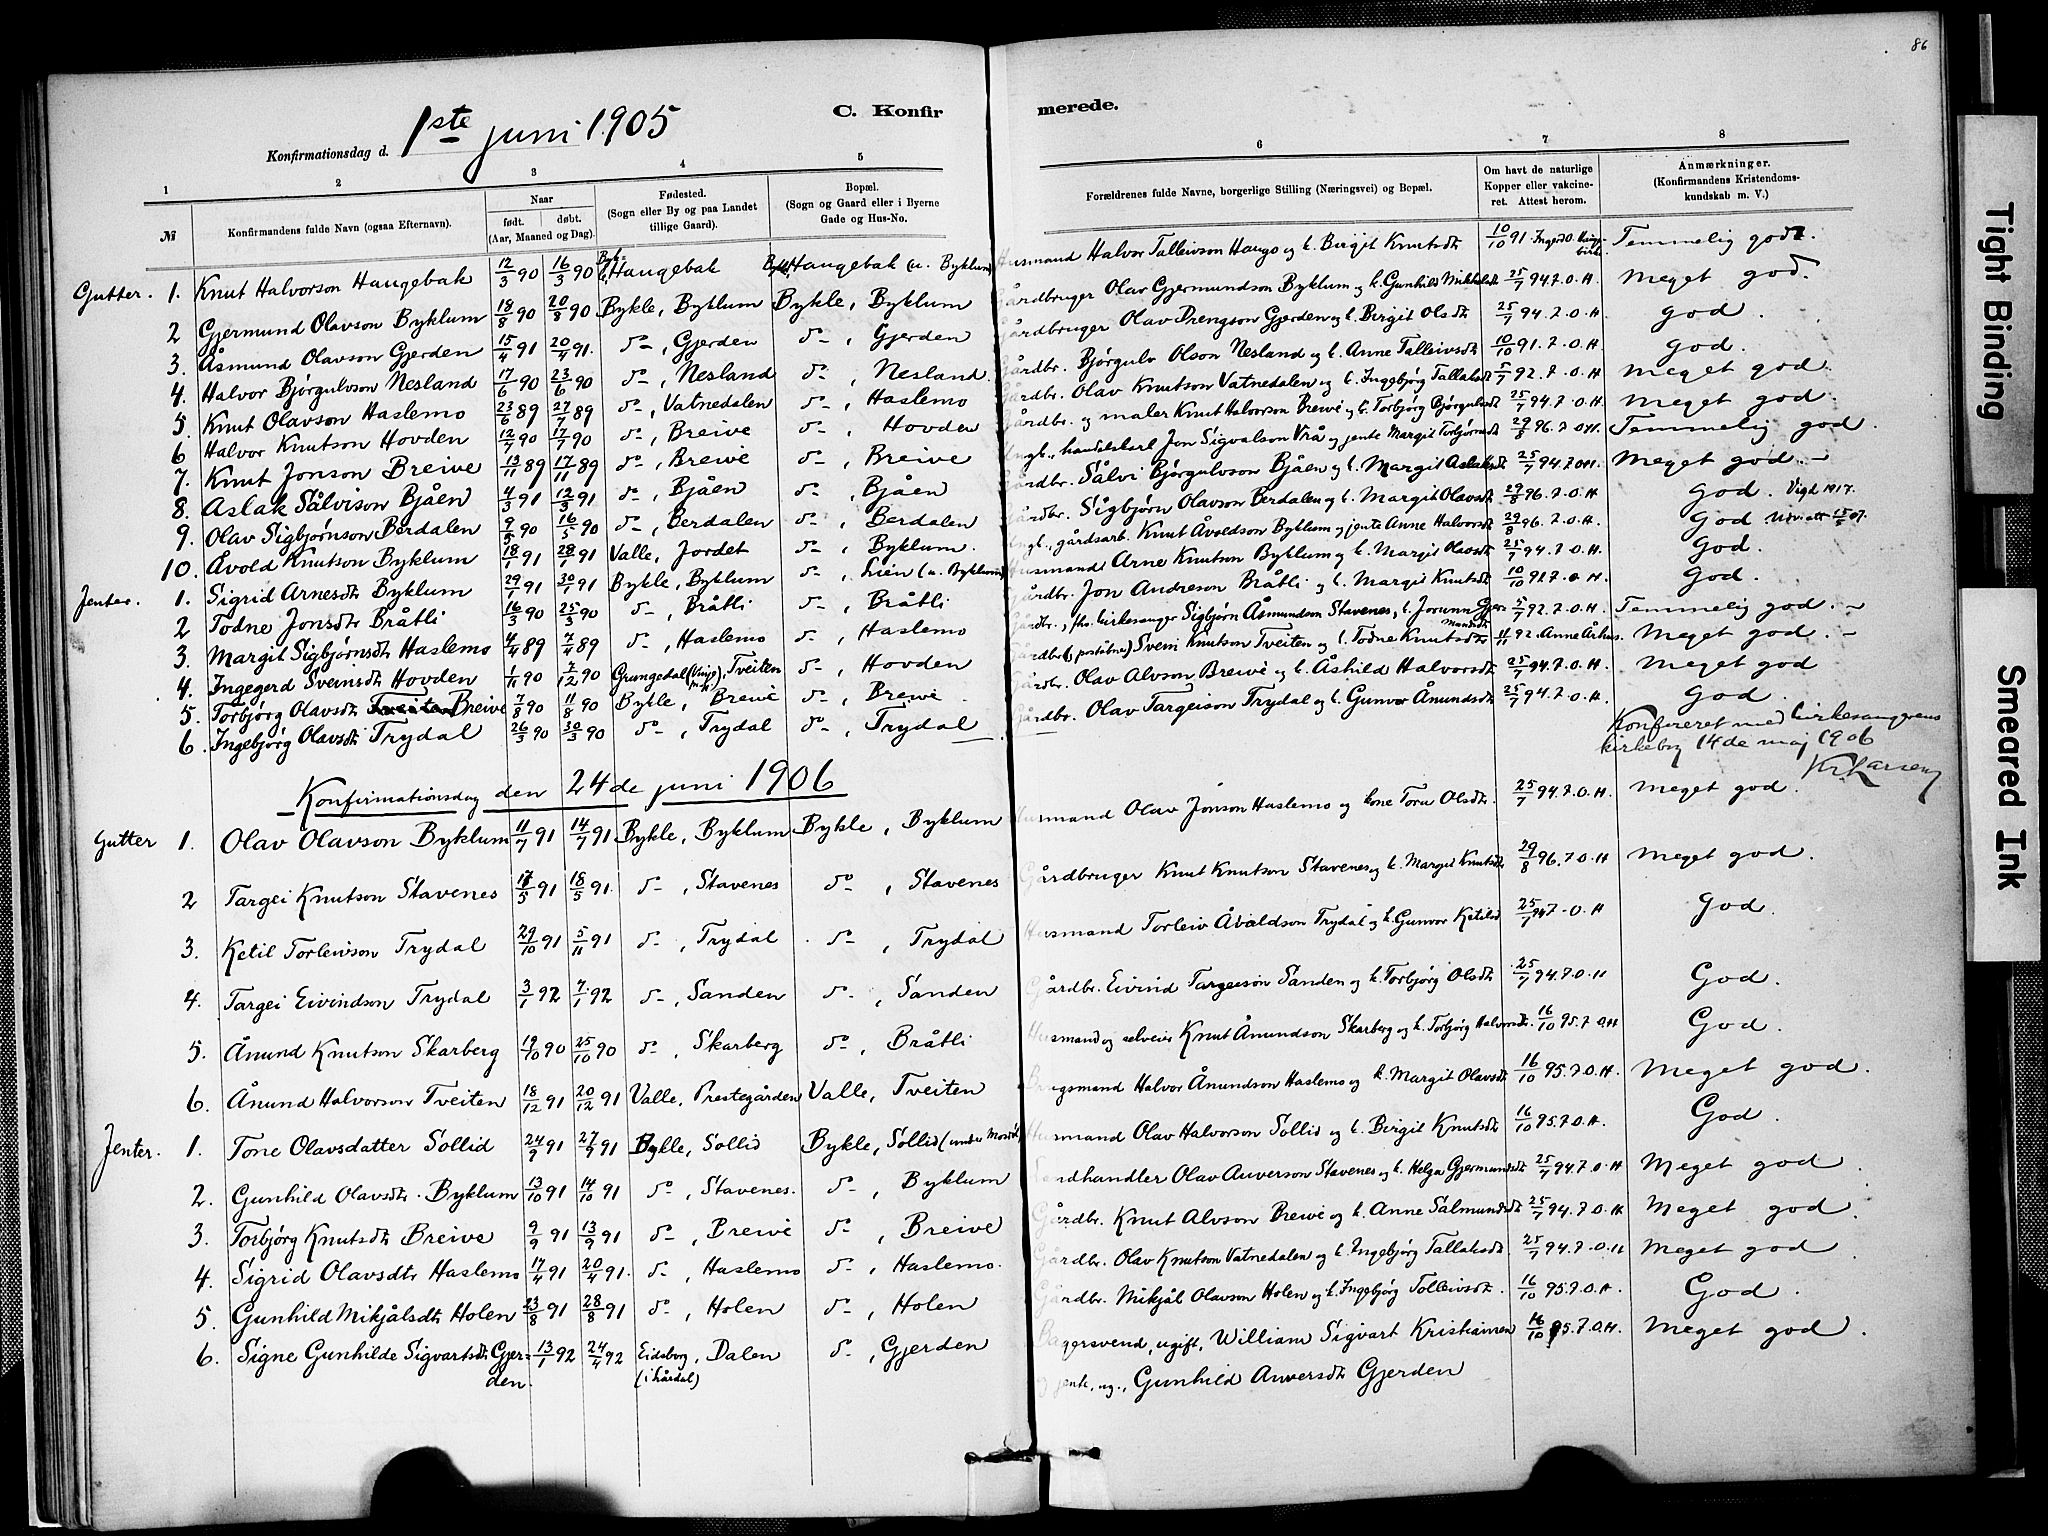 86
C. Konfirmerede.
Konfirmationsdag d. 1ste juni 1905
1 2 3 4 5 6 7 8
№
Konfirmandens fulde Navn (ogsaa Efternavn).
Naar
født. døbt.
(Aar, Maaned og Dag).
Fødested.
(Sogn eller By og paa Landet
tillige Gaard).
Bopæl.
(Sogn og Gaard eller i Byerne
Gade og Hus-No.
Forældrenes fulde Navne, borgerlige Stilling (Næringsvei) og Bopæl.
Om havt de naturlige
Kopper eller vakcine-
ret. Attest herom.
Anmærkninger.
(Konfirmandens Kristendoms-
kundskab m. V.)
Gutter. 1. Knut Halvorson Haugebak 12/3 90 16/3 90 Haugebak Haugebak (u. Byklum) Husmand Halvor Talleivson Haugo og k. Birgit Knutsdt 10/10 91 Temmelig god
2 Gjermund Olavson Byklum 18/8 90 20/8 90 Bykle, Byklum Bykle, Byklum Gårdbruger Olav Gjermundson Byklum og k. Gunhild 25/7 94. 7. O. H. Meget god.
3. Åsmund Olavson Gjerden 15/4 91 20/4 91. do, Gjerden do, Gjerden Gårdbruger Olav Drengson Gjerden og k. Birgit Olsdt 25/7 94. 7. O. H. god.
4. Halvor Bjørgulvson Nesland 17/6 90 23/6 90 do, Nesland do, Nesland. Gårdbr. Bjørgulv Olson Nesland og k. Anne Talleivsdt 10/10 91. 7. O. H. god.
5. Knut Olavson Haslemo 23/6 89 27/7 89 do, Vatnedalen do, Haslemo Gårdbr. Olav Knutson Vatnedalen og k. Ingebjørg Tallaksdt 5/7 92. 7. O. H. Meget god.
6 Halvor Knutson Hovden 12/7 90 17/7 90 do, Breive do, Hovden Gårdbr. og maler Knut Halvorson Breive og k. Torbjørg Bjørgulvsdt 25/7 94. 7. O. H. Meget god.
7. Knut Jonson Breive 13/11 89 17/11 89 do, Breive do, Breive Ungk., handelskarl Jon Sigvalson Vrå og jente Margit Torbjørnsdt 29/8 96. 7. O. H. Temmelig god.
8. Aslak Sålvison Bjåen 4/3 91 12/3 91 do, Bjåen do, Bjåen Gårdbr. Sålvi Bjørgulvson Bjåen og k. Margit Aslaksdt 25/7 94. 7. O. H. Meget god.
9. Olav Sigbjørnson Berdalen 9/5 90 16/5 90 do, Berdalen do, Berdalen Gårdbr. Sigbjørn Olavson Berdalen og k. Margit Olavsdt 29/8 96. 7. O. H. god. Vigd 1917.
10. Åvold Knutson Byklum 18/1 91 28/1 91 Valle, Jordet do, Byklum. Ungk., gårdsarb. Knut Åvoldson Byklum og jente Anne Halvorsdt 29/8 96. 7. O. H. God
Jenter. 1. Sigrid Arnesdtr Byklum 29/1 91 30/1 91 Bykle, Byklum do, Lien (u. Byklum) Husmand Arne Knutson Byklum og k. Margit Olavsdt 25/7 94. 7. O. H. God.
2 Todne Jonsdtr Bråtli 16/3 90 25/3 90 do, Bråtli do, Bråtli Gårdbr. Jon Andreson Bråtli og k. Margit Knutsdt 10/10 91. 7. O. H. God.
3. Margit Sigbjørnsdt Haslemo 4/4 89 7/4 89 do, Haslemo do, Haslemo Gårdbr., fhv. kirkesanger Sigbjørn Åsmundson Stavenes, k. Jorunn Gjermundsdt 5/7 92. 7. O. H. Temmelig god.
4. Ingegerd Sveinsdt Hovden 1/11 90 7/12 90 Grungedal (Vinje), Tveiten do, Hovden Gårdbr. (poståbner) Svein Knutson Tveiten og k. Todne Knutsdtr 11/11 92. Anne Århus. Meget god.
5. Torbjørg Olavsdt Breive 7/8 90 11/8 90 Bykle, Breive do, Breive Gårdbr. Olav Alvson Breive og k. Åshild Halvorsdt 25/7 94. 7. O. H. Meget god
6. Ingebjørg Olavsdt Trydal 26/3 90 30/3 90 do, Trydal do, Trydal Gårdbr. Olav Targeison Trydal og k. Gunvor Ånundsdt 25/7 94. 7. O. H. God
Konfereret med kirkesangerens
kirkebog 14de maj 1906
Kr. Larsen
Konfirmationsdag den 24de juni 1906
Gutter 1. Olav Olavson Byklum 11/7 91 14/7 91 Bykle, Byklum Bykle, Byklum Husmand Olav Jonson Haslemo og kone Toru Olsdt. 25/7 94. 7. O. H. Meget god.
2 Targei Knutson Stavenes 17/5 91 18/5 91. do, Stavenes do, Stavenes Gårdbruger Knut Knutson Stavenes og k. Margit Knutsdt 29/8 96. 7. O. H Meget god.
3. Ketil Torleivson Trydal 29/10 91 5/11 91 do, Trydal do, Trydal Husmand Torleiv Åvoldson Trydal og k. Gunvor Ketilsd 25/7 94 7. O. H God.
4. Targei Eivindson Trydal 3/1 92 7/1 92 do, Sanden do, Sanden Gårdbr. Eivind Targeison Sanden og k. Torbjørg Olsdt 25/7 94. 7. O. H God.
5. Ånund Knutson Skarberg 19/10 90 25/10 90 do, Skarberg do, Bråtli Husmand og selveier Knut Ånundson Skarberg og k. Torbjørg Halvorsdt. 16/10 95. 7. O. H God.
6. Ånund Halvorson Tveiten 18/12 91 20/12 91 Valle, Prestegården Valle, Tveiten Brugsmand Halvor Ånundson Haslemo og k. Margit Olavsdt 16/10 95. 7. O. H. Meget god.
Jenter. 1. Tone Olavsdatter Sollid 24/7 91 27/7 91 Bykle, Sollid Bykle, Sollid (under Mosdøl) Husmand Olav Halvorson Sollid og k. Birgit Knutsdt 16/10 95. 7. O. H. God.
2. Gunhild Olavsdt. Byklum 13/10 91 14/10 91 do, Stavenes. do, Byklum Landhandler Olav Anverson Stavenes og k. Helga Gjermundsdt 25/7 94. 7. O. H Meget god
3. Torbjørg Knutsdt Breive 9/9 91 13/9 91 do, Breive do, Breive Gårdbr. Knut Alvson Breive og k. Anne Salmundsdt 25/7 94. 7. O. H Meget god.
4. Sigrid Olavsdtr Haslemo 17/4 91 20/4 91. do, Haslemo do, Haslemo. Gårdbr. Olav Knutson Vatnedalen og k. Ingebjørg Tallaksdt 25/7 94. 7. O. H Meget god
5 Gunhild Mikjålsdt Holen 23/8 91 28/8 91 do, Holen do, Holen Gårdbr. Mikjål Olavson Holen og k. Ingebjørg Tolleivsdt. 16/10 95. 7. O. H. God.
6. Signe Gunhilde Sigvartsdt Gjer-
den. 13/1 92 24/4 92 Eidsborg, Dalen (i Lårdal) do, Gjerden Bagersvend, ugift, William Sigvart Kristiansen 16/10 95. 7. O. H. Meget god.
og jente, ug., Gunhild Anversdt Gjerden
Tight Binding
Smeared Ink